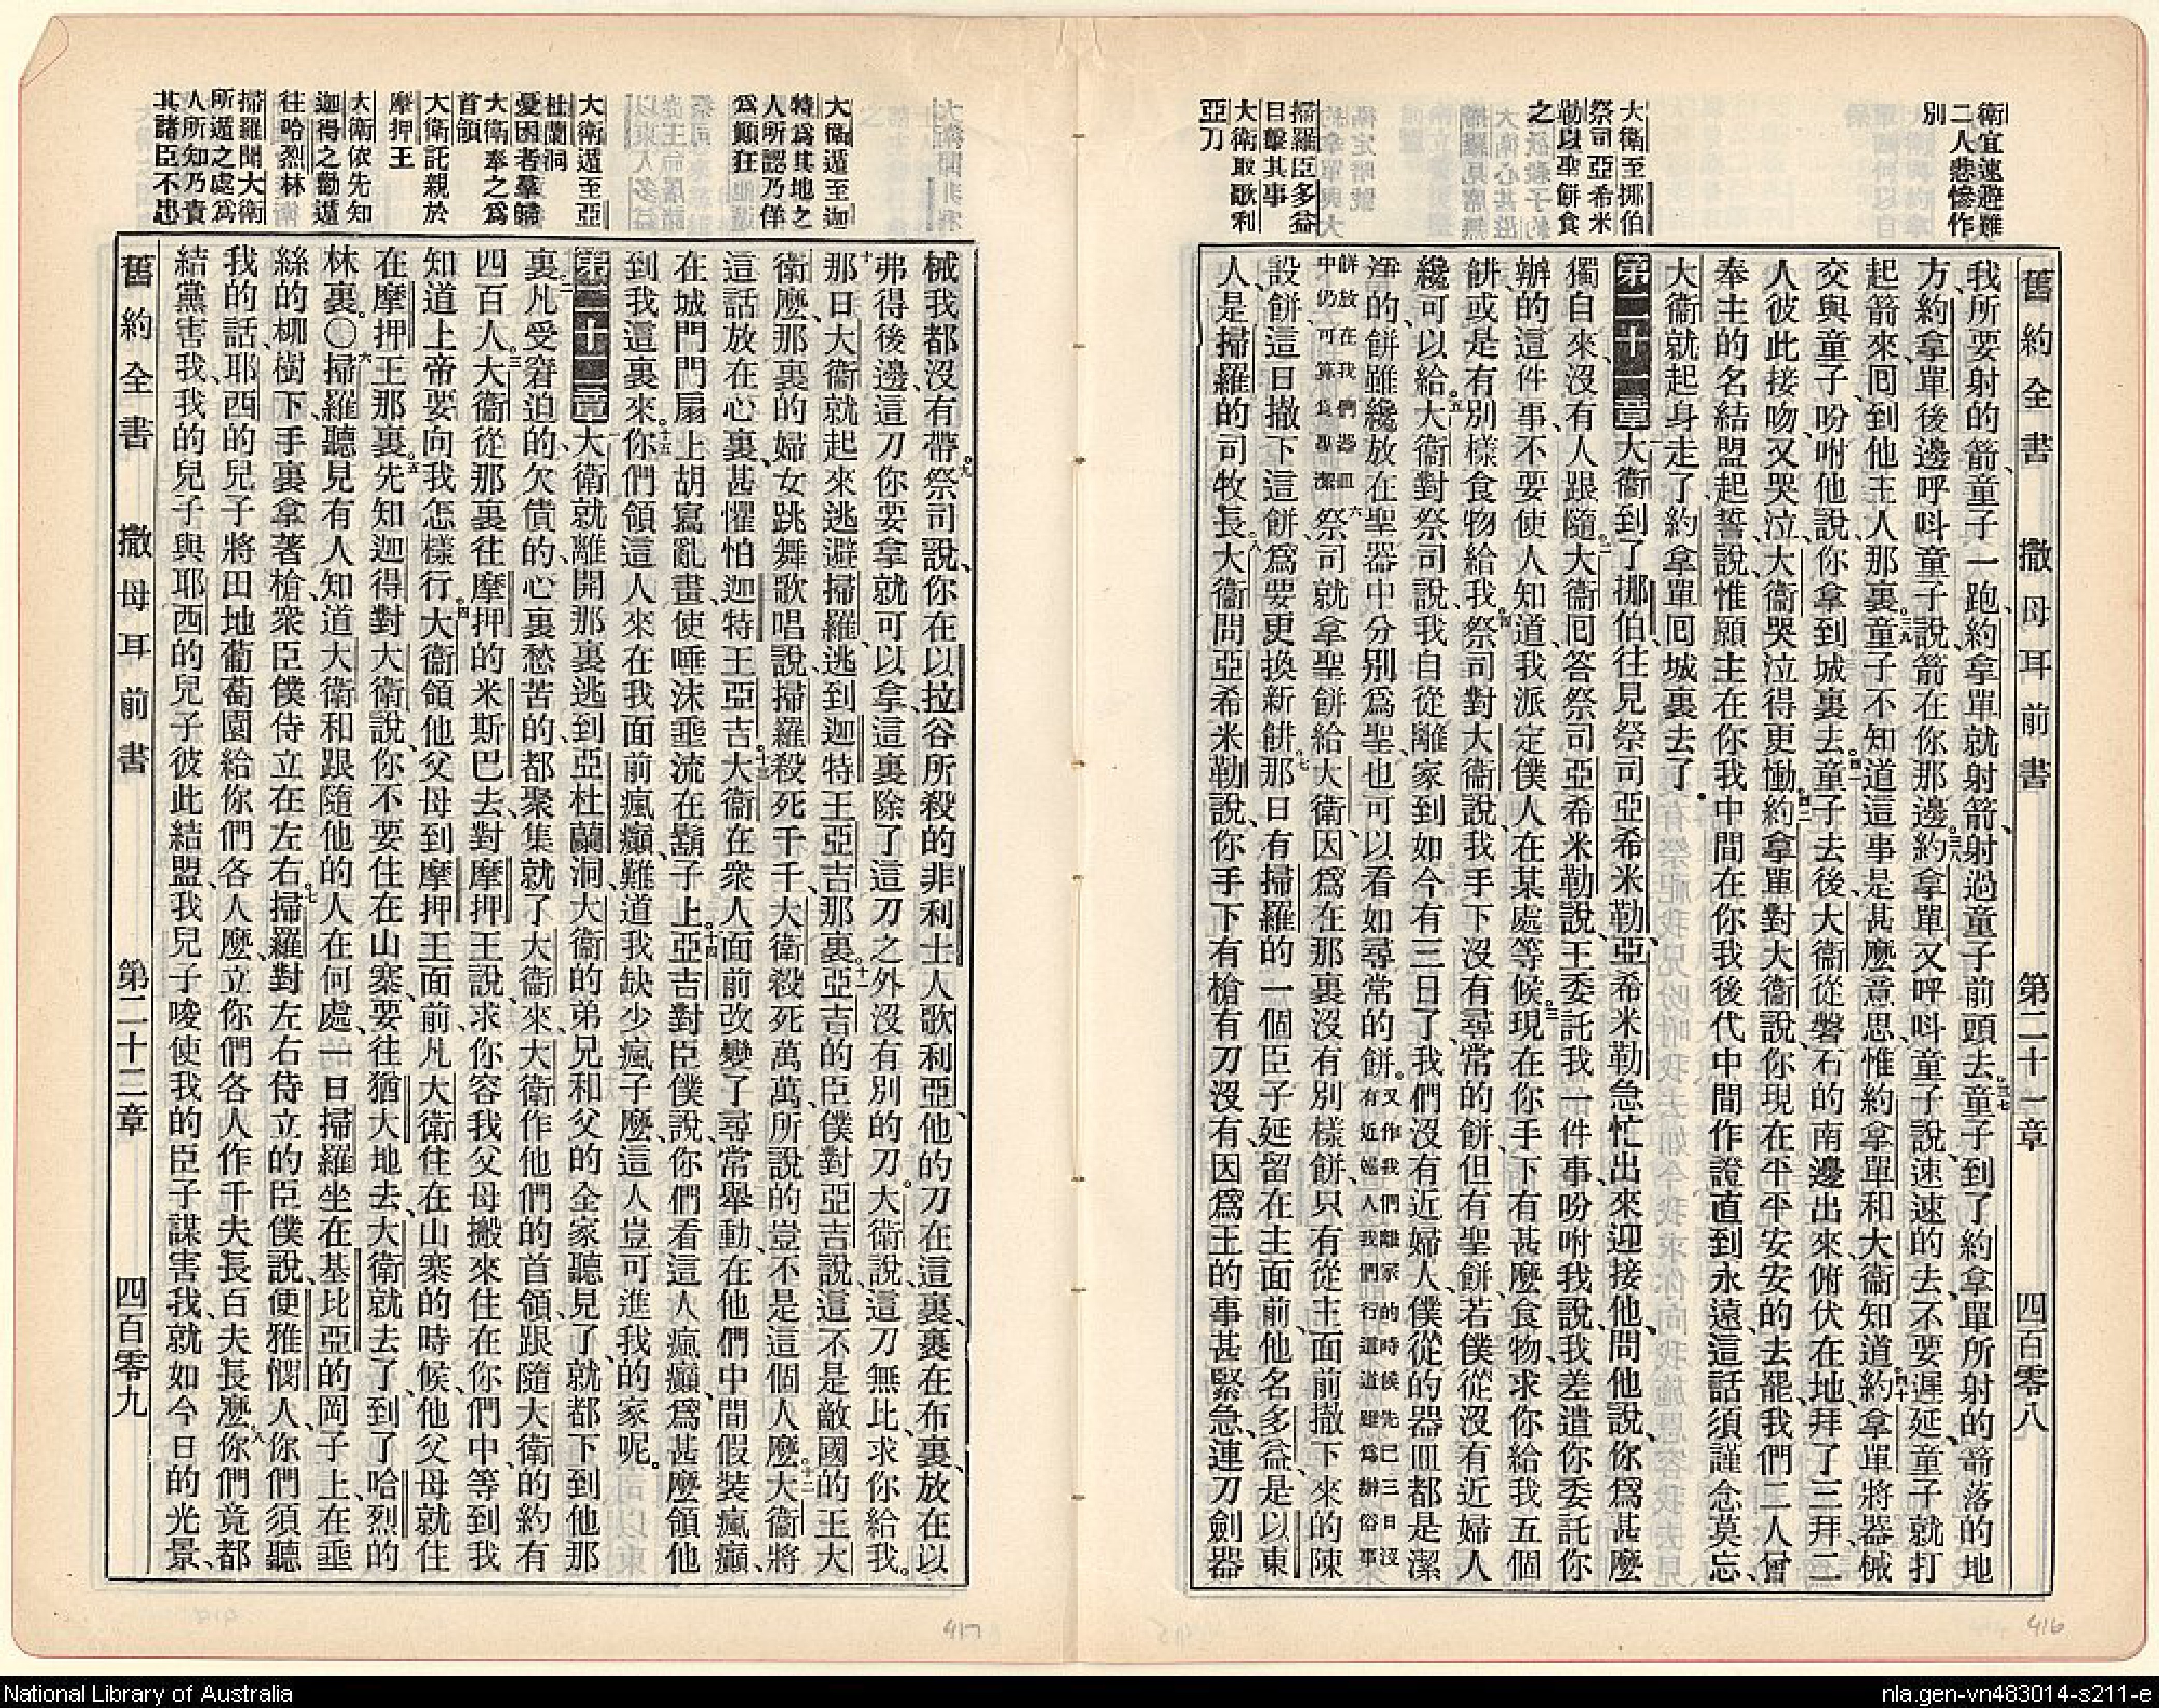 衛宜速避難
二人悲慘作
別
大衛至挪伯
祭司亞希米
勒以聖餅食
之
掃羅臣多益
目擊其事
大衛取歌利
亞刀
舊約全書 撒母耳前書 第二十一章 四百零八
我所要射的箭、童子一跑、約拿單就射箭、射過童子前頭去。三七童子到了約拿單所射的箭落的地
方、約拿單後邊呼呌童子說、箭在你那邊。三八約拿單又呼呌童子說、速速的去、不要遲延、童子就打
起箭來、囘到他主人那裏。三九童子不知道這事是甚麽意思、惟約拿單和大衞知道。四十約拿單將器械
交與童子、吩咐他說、你拿到城裏去。四一童子去後、大衞從磐石的南邊出來、俯伏在地、拜了三拜、二
人彼此接吻、又哭泣、大衞哭泣得更慟。四二約拿單對大衞說、你現在平平安安的去罷、我們二人曾
奉主的名結盟起誓、說、惟願主在你我中間、在你我後代中間作證直到永遠、這話須謹念莫忘、
大衞就起身走了、約拿單囘城裏去了。
第二十一章 一大衞到了挪伯、往見祭司亞希米勒、亞希米勒急忙出來迎接他、問他說、你爲甚麽
獨自來、沒有人跟隨。二大衞囘答祭司亞希米勒說、王委託我一件事、吩咐我說、我差遣你委託你
辦的這件事、不要使人知道、我派定僕人在某處等候。三現在你手下有甚麽食物、求你給我五個
餅、或是有別樣食物給我。四祭司對大衞說、我手下沒有尋常的餅、但有聖餅、若僕從沒有近婦人
纔可以給。五大衞對祭司說、我自從離家到如今有三日了、我們沒有近婦人、僕從的器皿都是潔
淨的、餅雖纔放在聖器中分別爲聖、也可以看如尋常的餅。又作我們離家的時候先已三日沒
有近婦人我們行這道雖爲辦俗事
餅放在我們器皿
中仍可算爲聖潔 六祭司就拿聖餅給大衛、因爲在那裏沒有別樣餅、只有從主面前撤下來的陳
設餅、這日撤下這餅、爲要更換新餅。七那日有掃羅的一個臣子延留在主面前、他名多益、是以東
人、是掃羅的司牧長。八大衞問亞希米勒說、你手下有槍有刀沒有、因爲王的事甚緊急、連刀劍器
416
大衞遁至迦
特爲其地之
人所認乃佯
爲顚狂
大衛遁至亞
杜蘭洞
憂困者羣歸
大衛奉之爲
首領
大衛託親於
摩押王
大衛依先知
迦得之勸遁
往哈烈林
掃羅聞大衛
所遁之處爲
人所知乃責
其諸臣不忠
械我都沒有帶。九祭司說、你在以拉谷所殺的非利士人歌利亞、他的刀在這裏、裹在布裏、放在以
弗得後邊、這刀你要拿就可以拿、這裏除了這刀之外沒有別的刀。大衛說、這刀無比、求你給我。
十那日大衞就起來逃避掃羅、逃到迦特王亞吉那裏。十一亞吉的臣僕對亞吉說、這不是敵國的王大
衛麽、那裏的婦女跳舞歌唱說、掃羅殺死千千、大衛殺死萬萬、所說的豈不是這個人麽。十二大衞將
這話放在心裏、甚懼怕迦特王亞吉。十三大衞在衆人面前改變了尋常舉動、在他們中間假裝瘋癲、
在城門門扇上胡寫亂畫、使唾沫垂流在鬍子上。十四亞吉對臣僕說、你們看這人瘋癲、爲甚麽領他
到我這裏來。十五你們領這人來在我面前瘋癲、難道我缺少瘋子麽、這人豈可進我的家呢。
第二十二章 一大衛就離開那裏、逃到亞杜蘭洞、大衞的弟兄和父的全家聽見了、就都下到他那
裏。二凡受窘迫的、欠債的、心裏愁苦的、都聚集就了大衛來、大衛作他們的首領、跟隨大衛的約有
四百人。三大衞從那裏往摩押的米斯巴去、對摩押王說、求你容我父母搬來住在你們中、等到我
知道上帝要向我怎樣行。四大衞領他父母到摩押王面前、凡大衛住在山寨的時候、他父母就住
在摩押王那裏。五先知迦得對大衛說、你不要住在山寨、要往猶大地去、大衛就去了、到了哈烈的
林裏。〇六掃羅聽見有人知道大衛和跟隨他的人在何處、一日掃羅坐在基比亞的岡子上、在垂
絲的柳樹下、手裏拿著槍、衆臣僕侍立在左右。七掃羅對左右侍立的臣僕說、便雅憫人、你們須聽
我的話、耶西的兒子將田地葡萄園給你們各人麽、立你們各人作千夫長百夫長麽。八你們竟都
結黨害我、我的兒子與耶西的兒子彼此結盟、我兒子唆使我的臣子謀害我、就如今日的光景、
舊約全書 撒母耳前書 第二十二章 四百零九
417
National Library of Australia
nla.gen-vn483014-s211-e